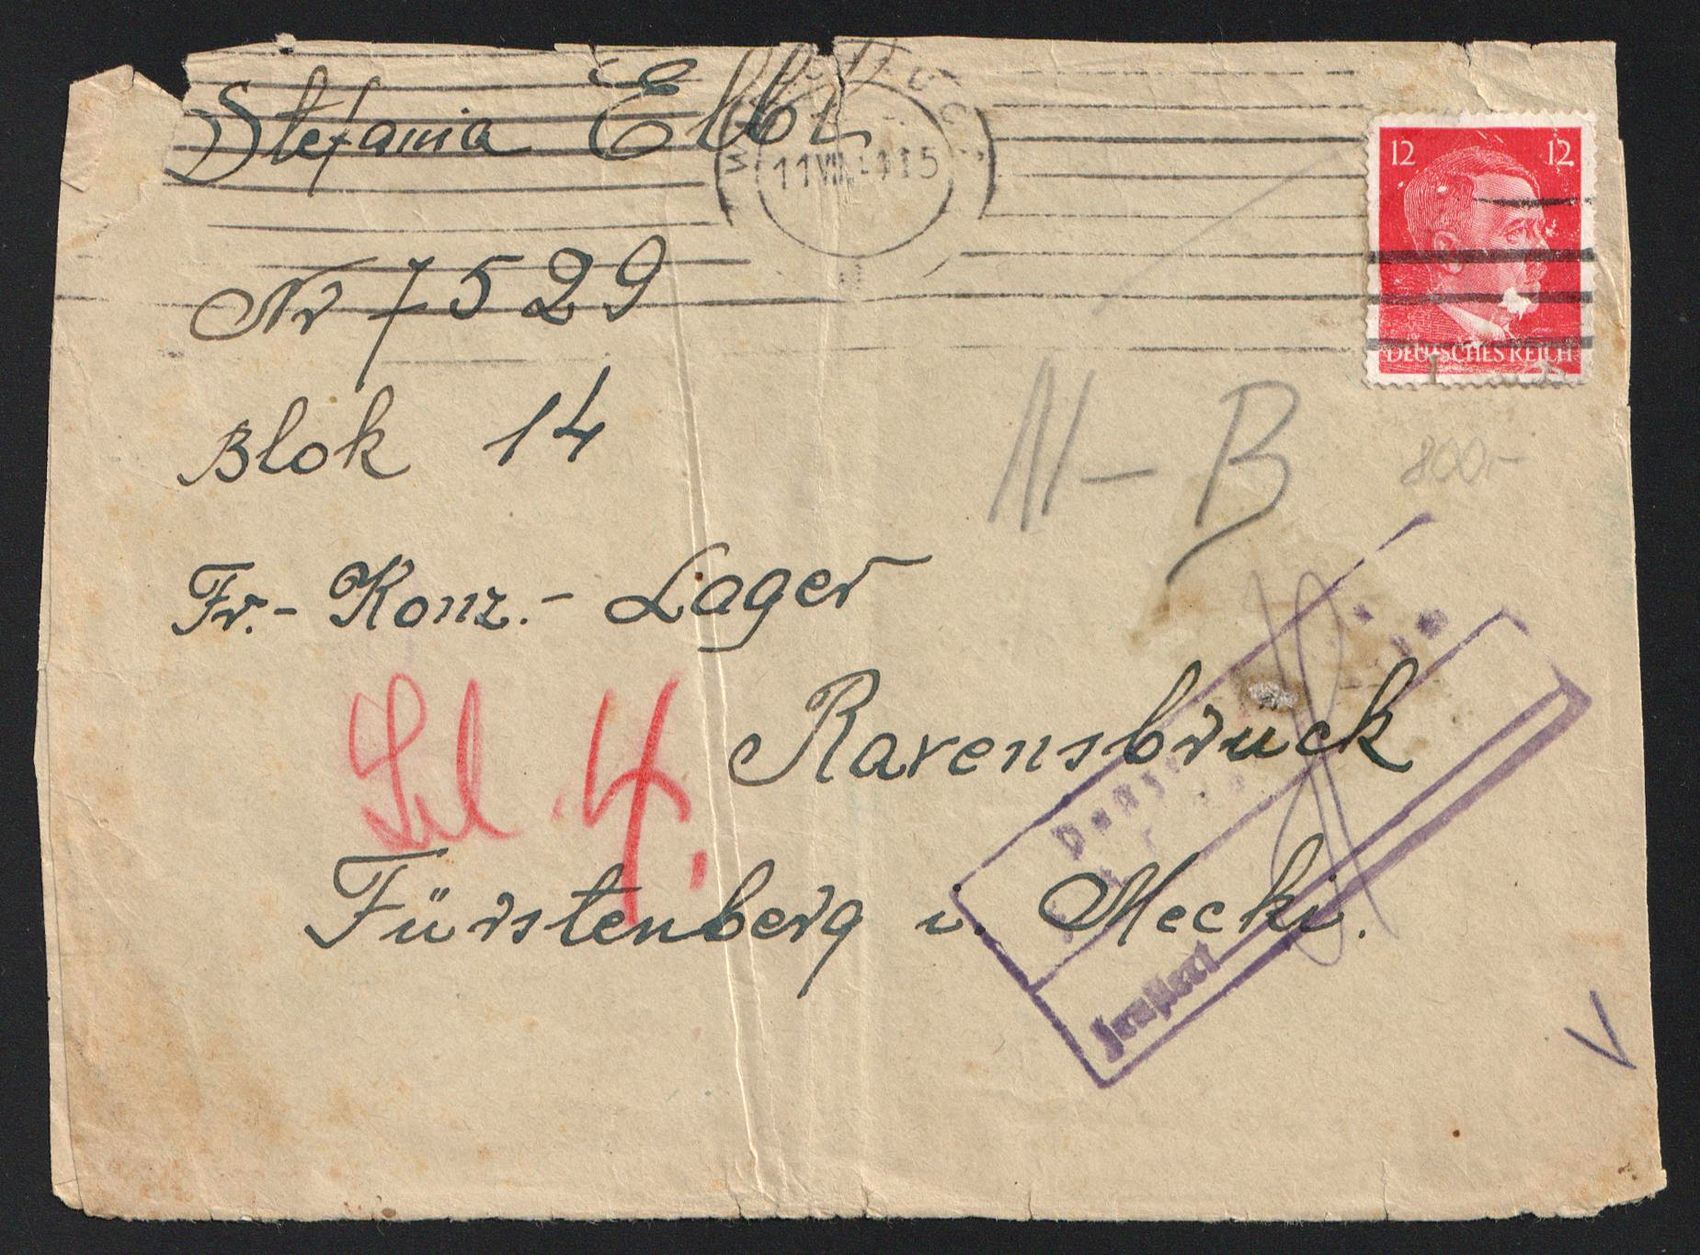 Stefania
11 VIII 4115
12 12
DEUTSCHES REICH
Nr 7529
Blok 14
N-B
800.-
Fr.- Konz.- Lager
Ravensbrück
4.
Fürstenberg i. Meckl.
Zensiert